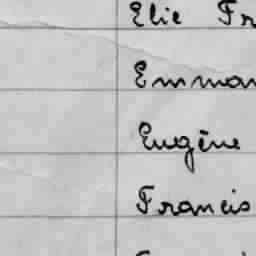 Elie Fr
Emman
Eugène
Francis